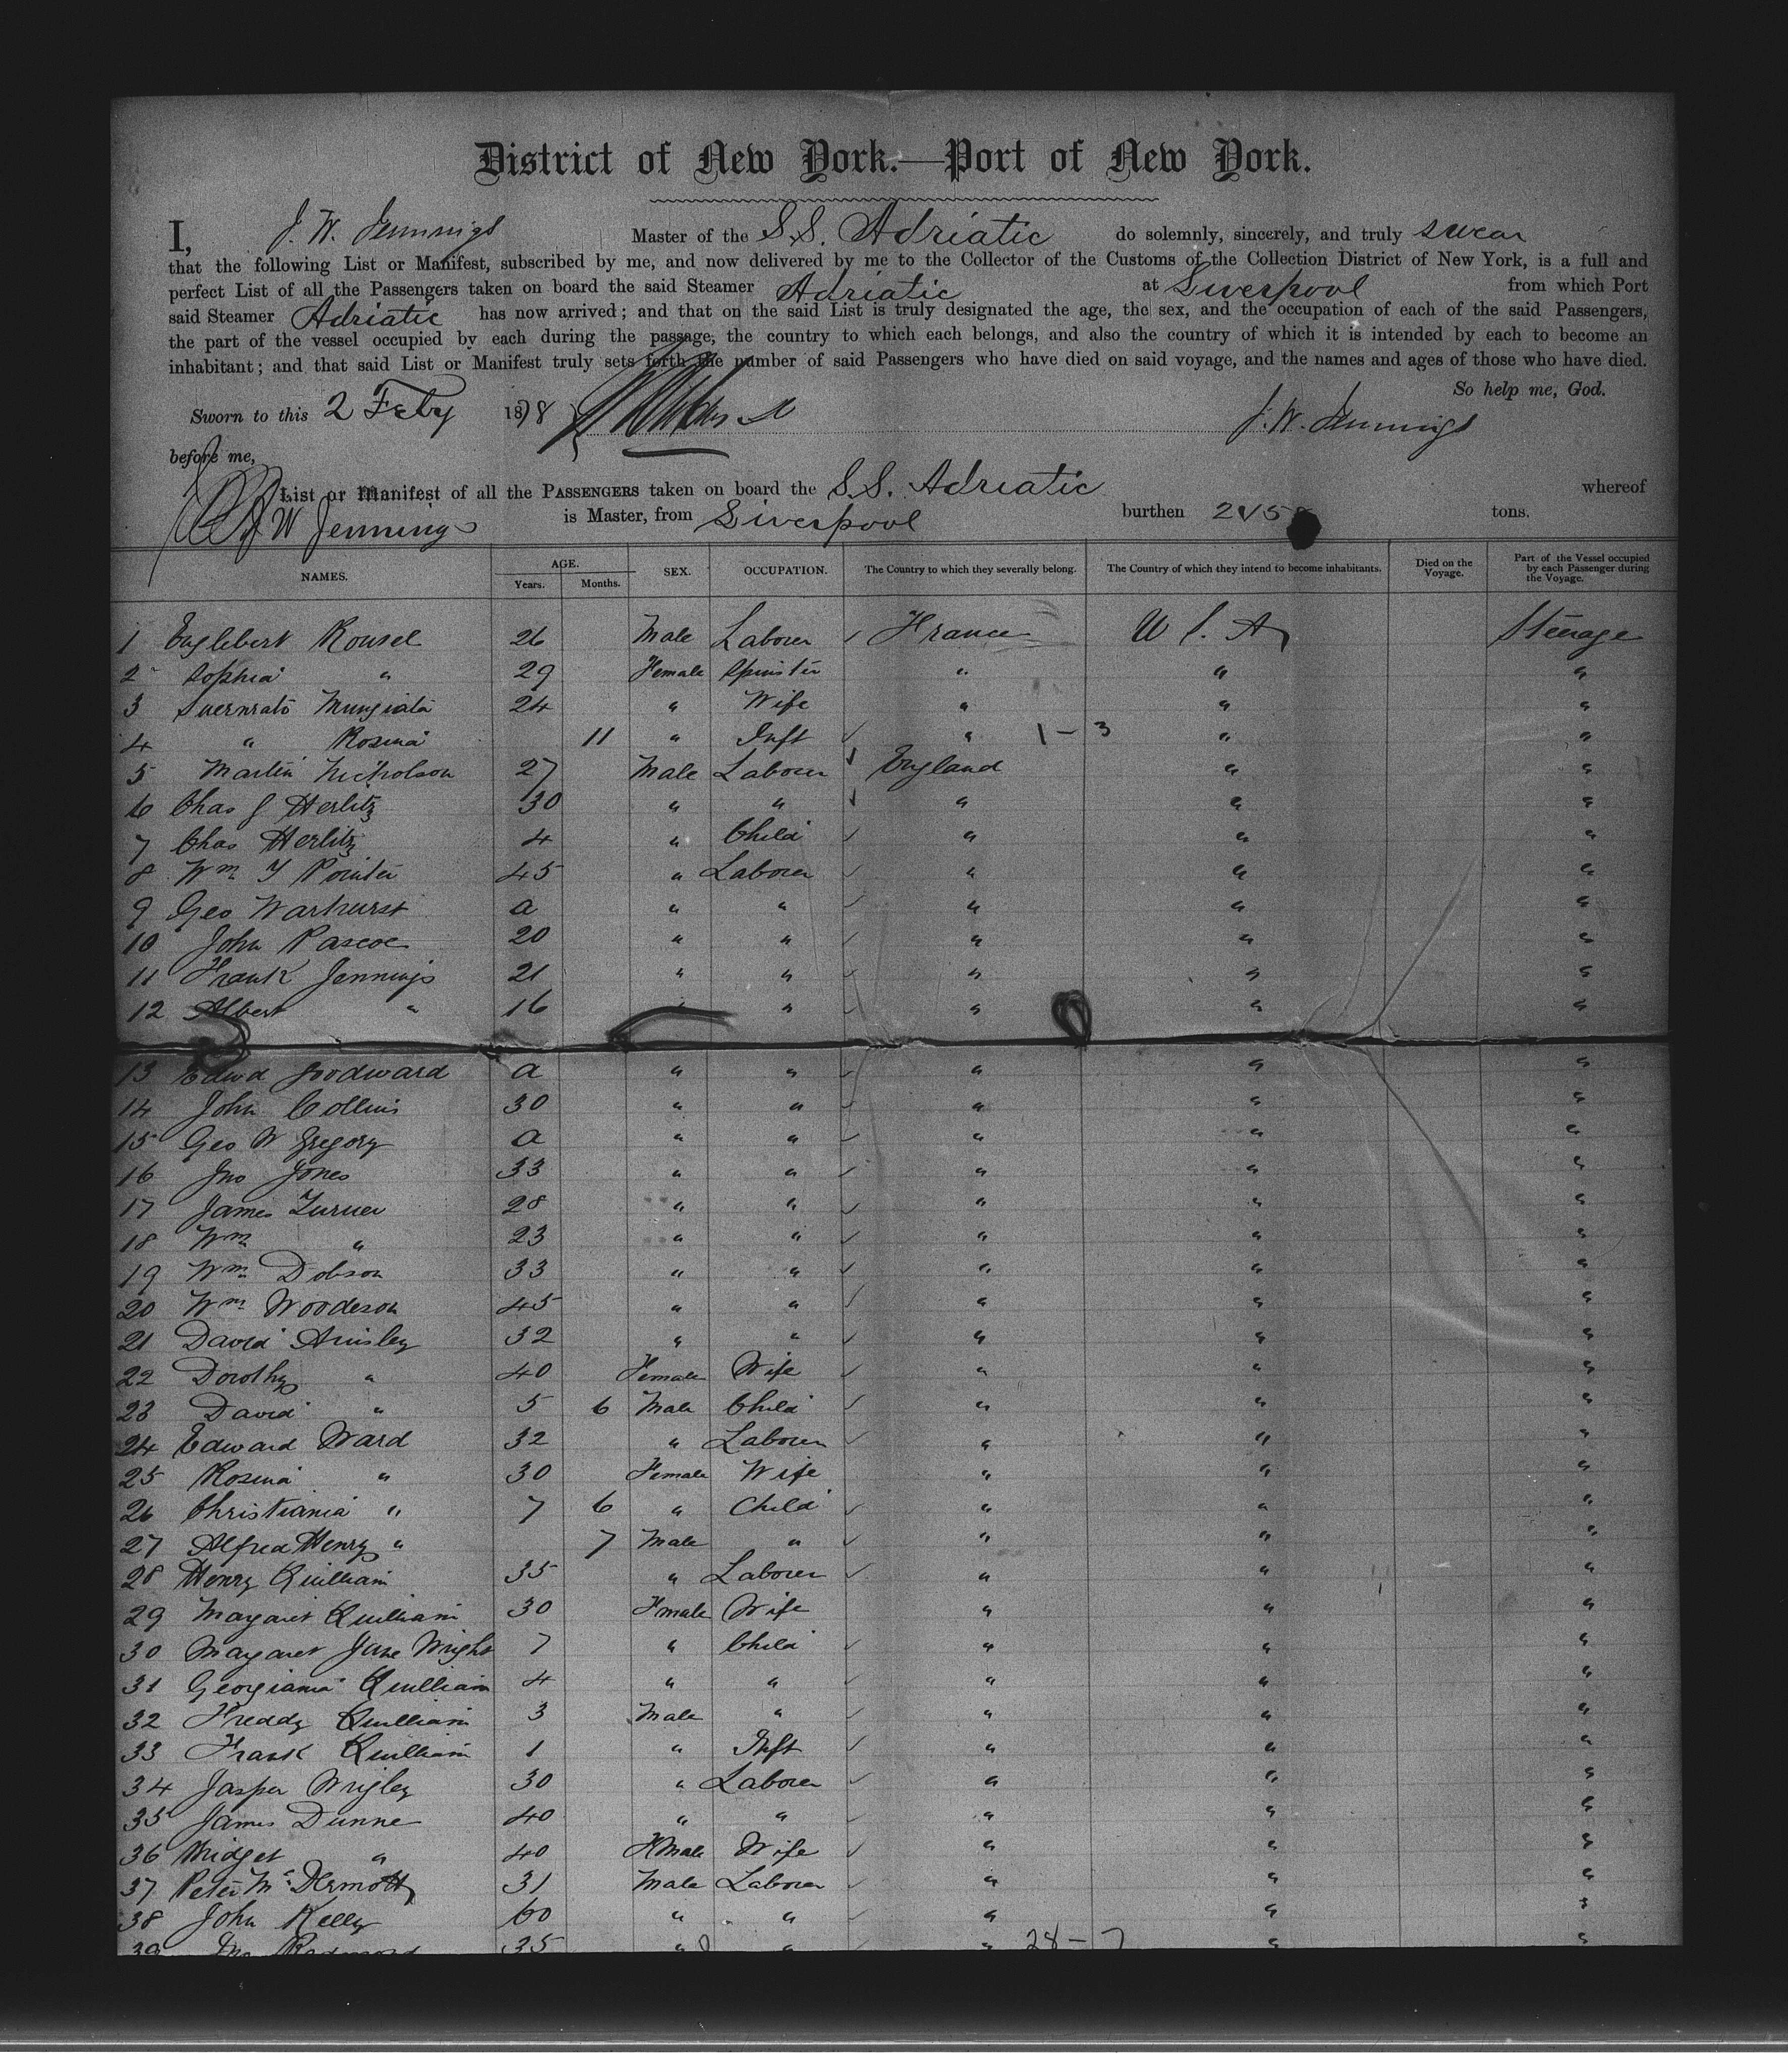 District of New York.—Port of New York.
I, J. W. Jennings Master of the S.S. Adriatic do solemnly, sincerely, and truly swear
that the following List or Manifest, subscribed by me, and now delivered by me to the Collector of the Customs of the Collection District of New York, is a full and
perfect List of all the Passengers taken on board the said Steamer Adriatic at Liverpool from which Port
said Steamer Adriatic has now arrived; and that on the said List is truly designated the age, the sex, and the occupation of each of the said Passengers,
the part of the vessel occupied by each during the passage, the country to which each belongs, and also the country of which it is intended by each to become an
inhabitant; and that said List or Manifest truly sets forth the number of said Passengers who have died on said voyage, and the names and ages of those who have died.
So help me, God.
Sworn to this 2 Feby 1878 J. W. Jennings
before me,
List or Manifest of all the PASSENGERS taken on board the S.S. Adriatic whereof
J W Jennings is Master, from Liverpool burthen tons.
NAMES. AGE. Years. Months. SEX. OCCUPATION. The Country to which they severally belong. The Country of which they intend to become inhabitants. Died on the Voyage. Part of the Vessel occupied by each Passenger during the Voyage.
1 Englebert Rousel 26 Male Laborer France U S. A Steerage
2 Sophia " 29 Female Spinster " " "
3 Mungiata 24 " Wife " " "
4 " Rosina 11 " Inft " 1 - 3 " "
5 Martin Nicholson 27 Male Laborer England " "
6 Chas J Herlitz 30 " " " " "
7 Chas Herlitz 4 " Child " " "
8 Wm Y Pointer 45 " Laborer " " "
9 Geo Warhurst a " " " " "
10 John Pascoe 20 " " " " "
11 Frank Jennings 21 " " " " "
12 Albert " 16 " " " " "
13 Edwd Goodward a " " " " "
14 John Collins 30 " " " " "
15 Geo W Gregory a " " " " "
16 Jno Jones 33 " " " " "
17 James Turner 28 " " " " "
18 Wm " 23 " " " " "
19 Wm Dobson 33 " " " " "
20 Wm Woodeson 45 " " " " "
21 David Ainsley 32 " " " " "
22 Dorothy " 40 Female Wife " " "
23 David " 5 6 Male Child " " "
24 Edward Ward 32 " Laborer " " "
25 Rosina " 30 Female Wife " " "
26 Christiania " 7 6 " Child " " "
27 Alfred Henry " 7 Male " " " "
28 Henry Quilliam 35 " Laborer " " "
29 Margaret Quilliam 30 Fmale Wife " " "
30 Margaret Jane Wright 7 " Child " " "
31 Georgiana Quilliam 4 " " " " "
32 Freddy Quilliam 3 Male " " " "
33 Frank Quilliam 1 " Inft " " "
34 Jasper Wrigley 30 " Laborer " " "
35 James Dunne 40 " " " " "
36 Bridget " 40 FMale Wife " " "
37 Peter McDermott 31 Male Laborer " " "
38 John Kelly 60 " " " " "
39 Jno Redmond 35 " " " 28 - 7 " "